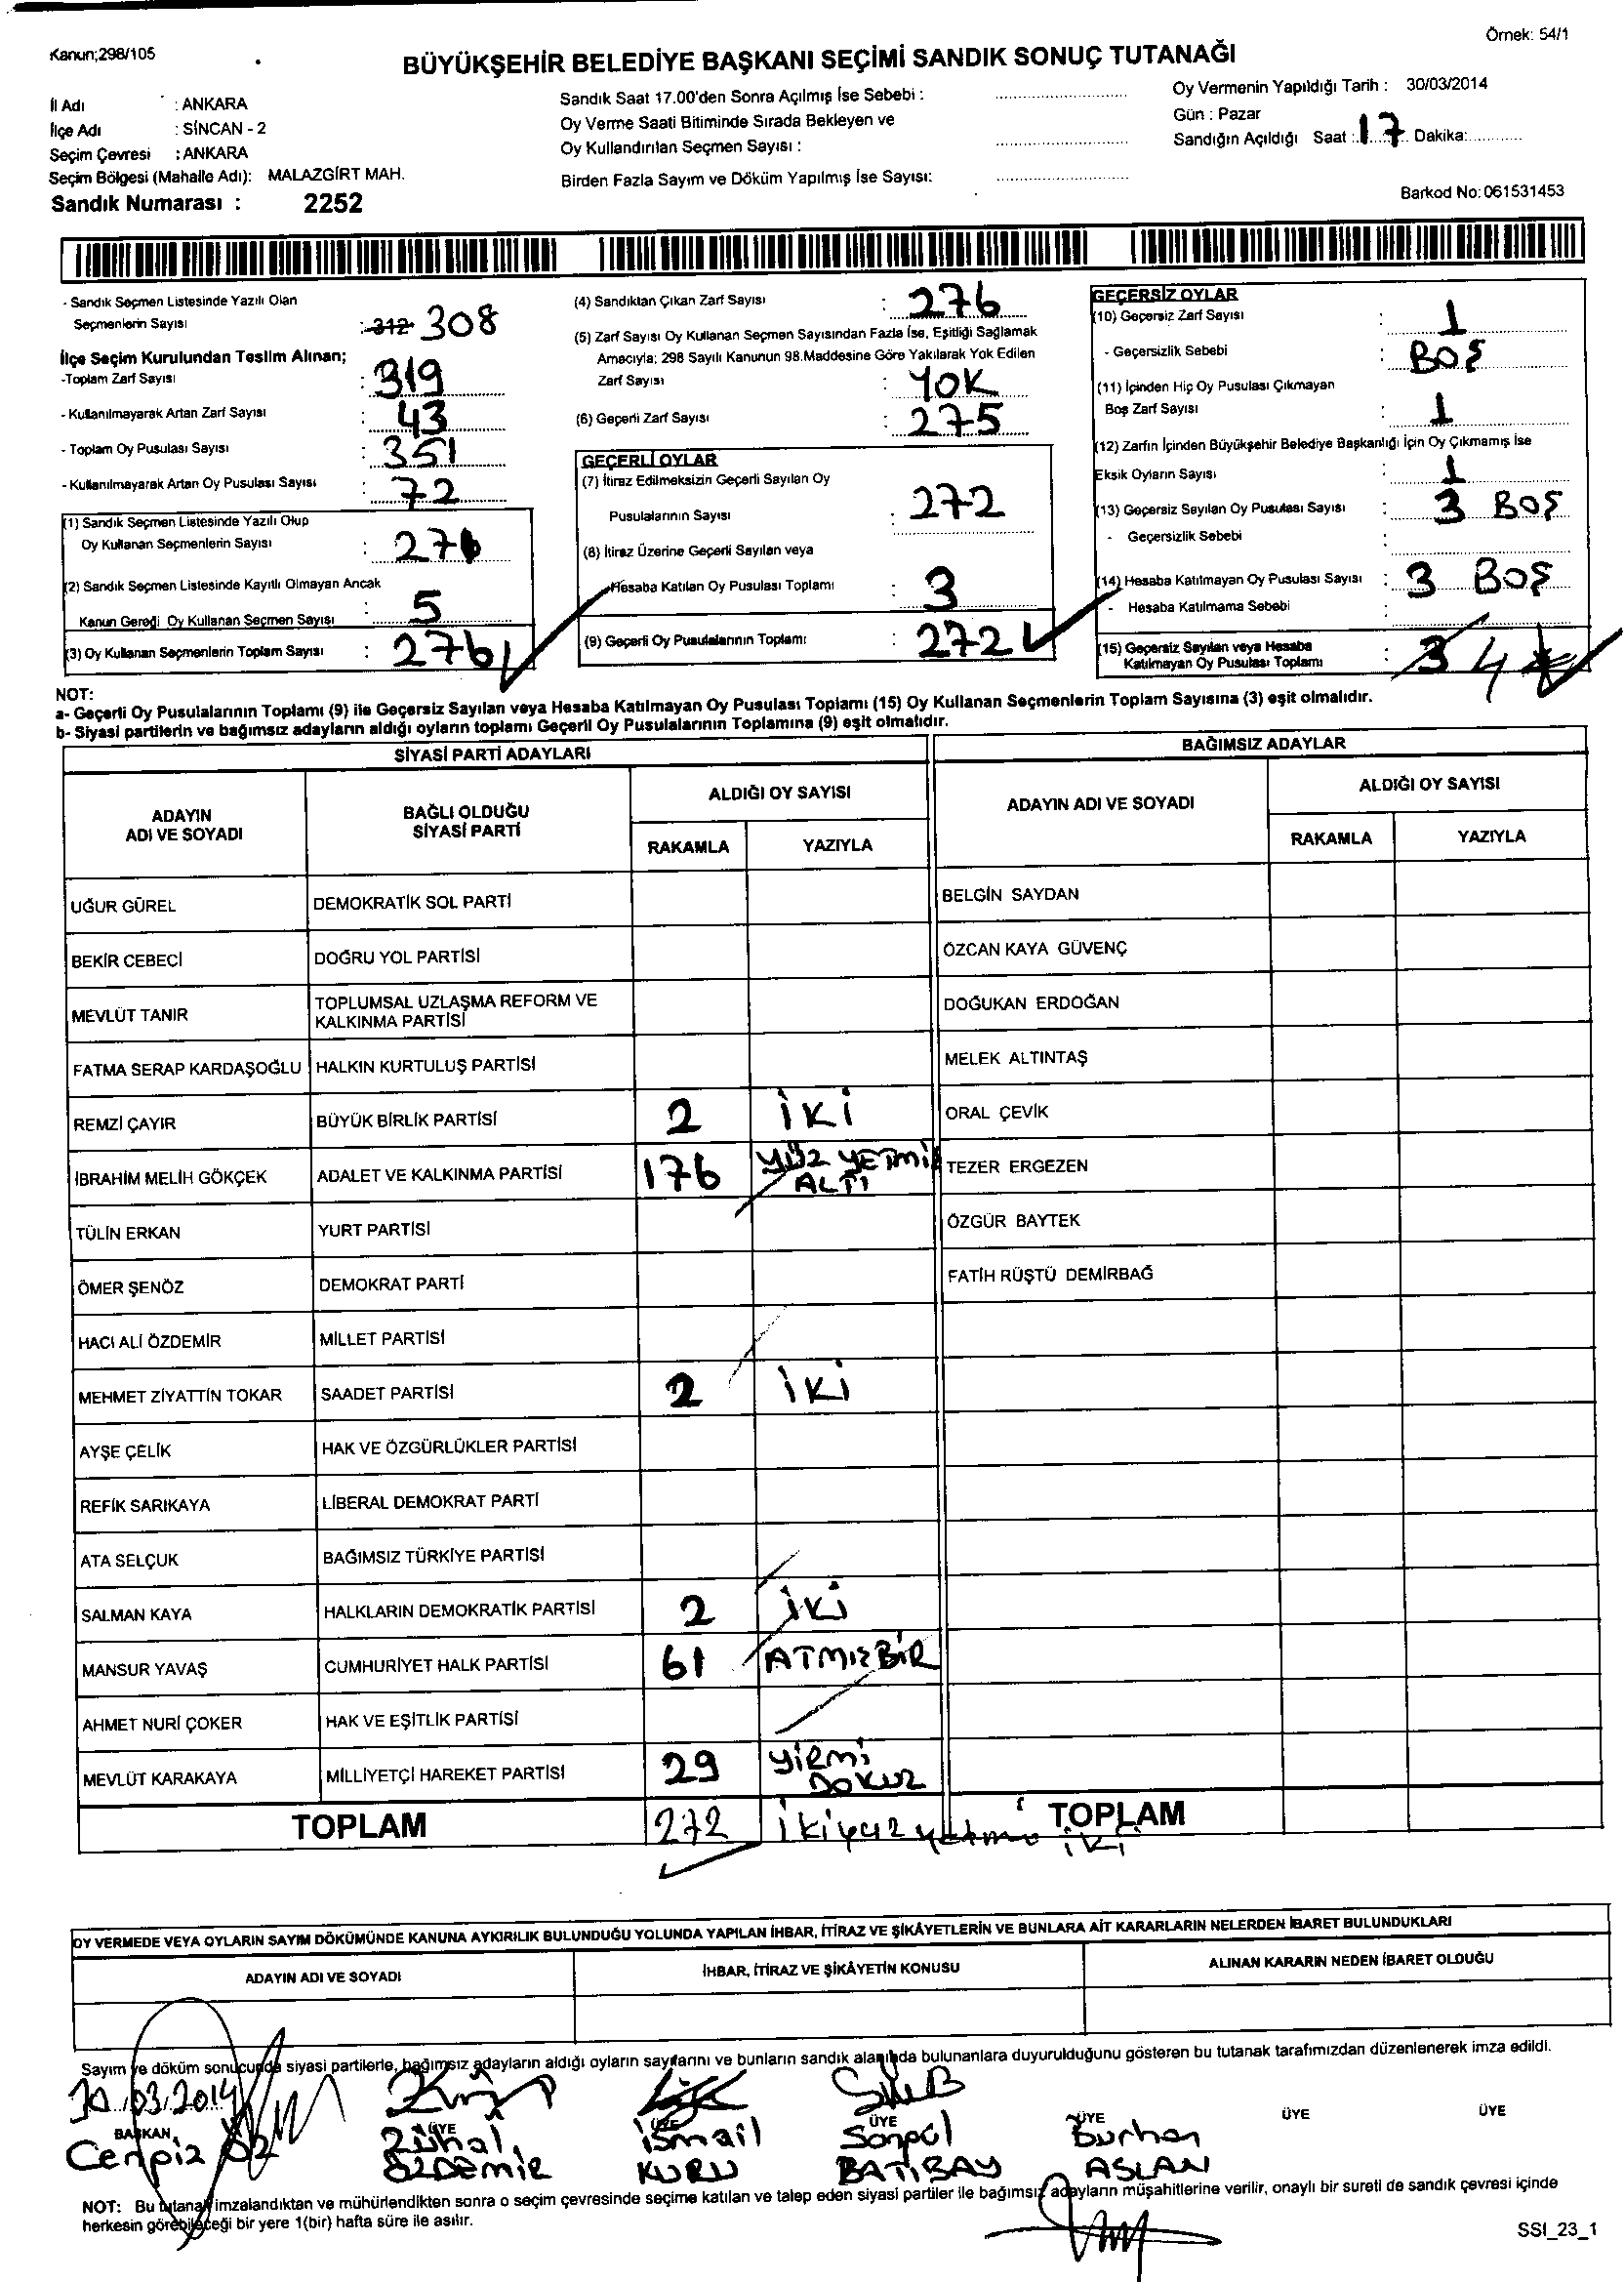 Kanun;298/105
Örnek: 54/1
BÜYÜKŞEHİR BELEDİYE BAŞKANI SEÇİMİ SANDIK SONUÇ TUTANAĞI
İl Adı : ANKARA
İlçe Adı : SİNCAN - 2
Seçim Çevresi : ANKARA
Seçim Bölgesi (Mahalle Adı): MALAZGİRT MAH.
Sandık Numarası : 2252
Sandık Saat 17.00'den Sonra Açılmış İse Sebebi :
Oy Verme Saati Bitiminde Sırada Bekleyen ve
Oy Kullandırılan Seçmen Sayısı :
Birden Fazla Sayım ve Döküm Yapılmış İse Sayısı:
Oy Vermenin Yapıldığı Tarih : 30/03/2014
Gün : Pazar
Sandığın Açıldığı Saat : 17 Dakika:
Barkod No: 061531453
- Sandık Seçmen Listesinde Yazılı Olan
Seçmenlerin Sayısı : 312 308
İlçe Seçim Kurulundan Teslim Alınan;
-Toplam Zarf Sayısı : 319
- Kullanılmayarak Artan Zarf Sayısı : 43
- Toplam Oy Pusulası Sayısı : 351
- Kullanılmayarak Artan Oy Pusulası Sayısı : 72
(1) Sandık Seçmen Listesinde Yazılı Olup
Oy Kullanan Seçmenlerin Sayısı : 276
(2) Sandık Seçmen Listesinde Kayıtlı Olmayan Ancak
Kanun Gereği Oy Kullanan Seçmen Sayısı : 5
(3) Oy Kullanan Seçmenlerin Toplam Sayısı : 276
(4) Sandıktan Çıkan Zarf Sayısı : 276
(5) Zarf Sayısı Oy Kullanan Seçmen Sayısından Fazla İse, Eşitliği Sağlamak
Amacıyla; 298 Sayılı Kanunun 98.Maddesine Göre Yakılarak Yok Edilen
Zarf Sayısı : YOK
(6) Geçerli Zarf Sayısı : 275
GEÇERLİ OYLAR
(7) İtiraz Edilmeksizin Geçerli Sayılan Oy
Pusulalarının Sayısı : 272
(8) İtiraz Üzerine Geçerli Sayılan veya
Hesaba Katılan Oy Pusulası Toplamı : 3
(9) Geçerli Oy Pusulalarının Toplamı: : 272
GEÇERSİZ OYLAR
(10) Geçersiz Zarf Sayısı : 1
- Geçersizlik Sebebi : BOŞ
(11) İçinden Hiç Oy Pusulası Çıkmayan
Boş Zarf Sayısı : 1
(12) Zarfın İçinden Büyükşehir Belediye Başkanlığı İçin Oy Çıkmamış İse
Eksik Oyların Sayısı : 1
(13) Geçersiz Sayılan Oy Pusulası Sayısı : 3 BOŞ
- Geçersizlik Sebebi :
(14) Hesaba Katılmayan Oy Pusulası Sayısı : 3 BOŞ
- Hesaba Katılmama Sebebi :
(15) Geçersiz Sayılan veya Hesaba
Katılmayan Oy Pusulası Toplamı : 3 4
NOT:
a- Geçerli Oy Pusulalarının Toplamı (9) ile Geçersiz Sayılan veya Hesaba Katılmayan Oy Pusulası Toplamı (15) Oy Kullanan Seçmenlerin Toplam Sayısına (3) eşit olmalıdır.
b- Siyasi partilerin ve bağımsız adayların aldığı oyların toplamı Geçerli Oy Pusulalarının Toplamına (9) eşit olmalıdır.
SİYASİ PARTİ ADAYLARI
ADAYIN ADI VE SOYADI
BAĞLI OLDUĞU SİYASİ PARTİ
ALDIĞI OY SAYISI
RAKAMLA YAZIYLA
UĞUR GÜREL DEMOKRATİK SOL PARTİ
BEKİR CEBECİ DOĞRU YOL PARTİSİ
MEVLÜT TANIR TOPLUMSAL UZLAŞMA REFORM VE
KALKINMA PARTİSİ
FATMA SERAP KARDAŞOĞLU HALKIN KURTULUŞ PARTİSİ
REMZİ ÇAYIR BÜYÜK BİRLİK PARTİSİ 2 İKİ
İBRAHİM MELİH GÖKÇEK ADALET VE KALKINMA PARTİSİ 176 YÜZ YETMİŞ
ALTI
TÜLİN ERKAN YURT PARTİSİ
ÖMER ŞENÖZ DEMOKRAT PARTİ
HACI ALİ ÖZDEMİR MİLLET PARTİSİ
MEHMET ZİYATTİN TOKAR SAADET PARTİSİ 2 İKİ
AYŞE ÇELİK HAK VE ÖZGÜRLÜKLER PARTİSİ
REFİK SARIKAYA LİBERAL DEMOKRAT PARTİ
ATA SELÇUK BAĞIMSIZ TÜRKİYE PARTİSİ
SALMAN KAYA HALKLARIN DEMOKRATİK PARTİSİ 2 İKİ
MANSUR YAVAŞ CUMHURİYET HALK PARTİSİ 61 ATMIŞBİR
AHMET NURİ ÇOKER HAK VE EŞİTLİK PARTİSİ
MEVLÜT KARAKAYA MİLLİYETÇİ HAREKET PARTİSİ 29 YİRMİ
DOKUZ
TOPLAM 272 ikiyüz yetmiş iki
BAĞIMSIZ ADAYLAR
ADAYIN ADI VE SOYADI
ALDIĞI OY SAYISI
RAKAMLA YAZIYLA
BELGİN SAYDAN
ÖZCAN KAYA GÜVENÇ
DOĞUKAN ERDOĞAN
MELEK ALTINTAŞ
ORAL ÇEVİK
TEZER ERGEZEN
ÖZGÜR BAYTEK
FATİH RÜŞTÜ DEMİRBAĞ
TOPLAM
OY VERMEDE VEYA OYLARIN SAYIM DÖKÜMÜNDE KANUNA AYKIRILIK BULUNDUĞU YOLUNDA YAPILAN İHBAR, İTİRAZ VE ŞİKÂYETLERİN VE BUNLARA AİT KARARLARIN NELERDEN İBARET BULUNDUKLARI
ADAYIN ADI VE SOYADI İHBAR, İTİRAZ VE ŞİKÂYETİN KONUSU ALINAN KARARIN NEDEN İBARET OLDUĞU
Sayım ve döküm sonucunda siyasi partilerle, bağımsız adayların aldığı oyların sayılarını ve bunların sandık alanında bulunanlara duyurulduğunu gösteren bu tutanak tarafımızdan düzenlenerek imza edildi.
30/03/2014
BAŞKAN ÜYE ÜYE ÜYE ÜYE ÜYE ÜYE
Cengiz ÖZ Zühal İsmail Songül Burhan
ÖZDEMİR KURU BATIBAY ASLAN
NOT: Bu tutanak imzalandıktan ve mühürlendikten sonra o seçim çevresinde seçime katılan ve talep eden siyasi partiler ile bağımsız adayların müşahitlerine verilir, onaylı bir sureti de sandık çevresi içinde
herkesin görebileceği bir yere 1(bir) hafta süre ile asılır.
SSI_23_1